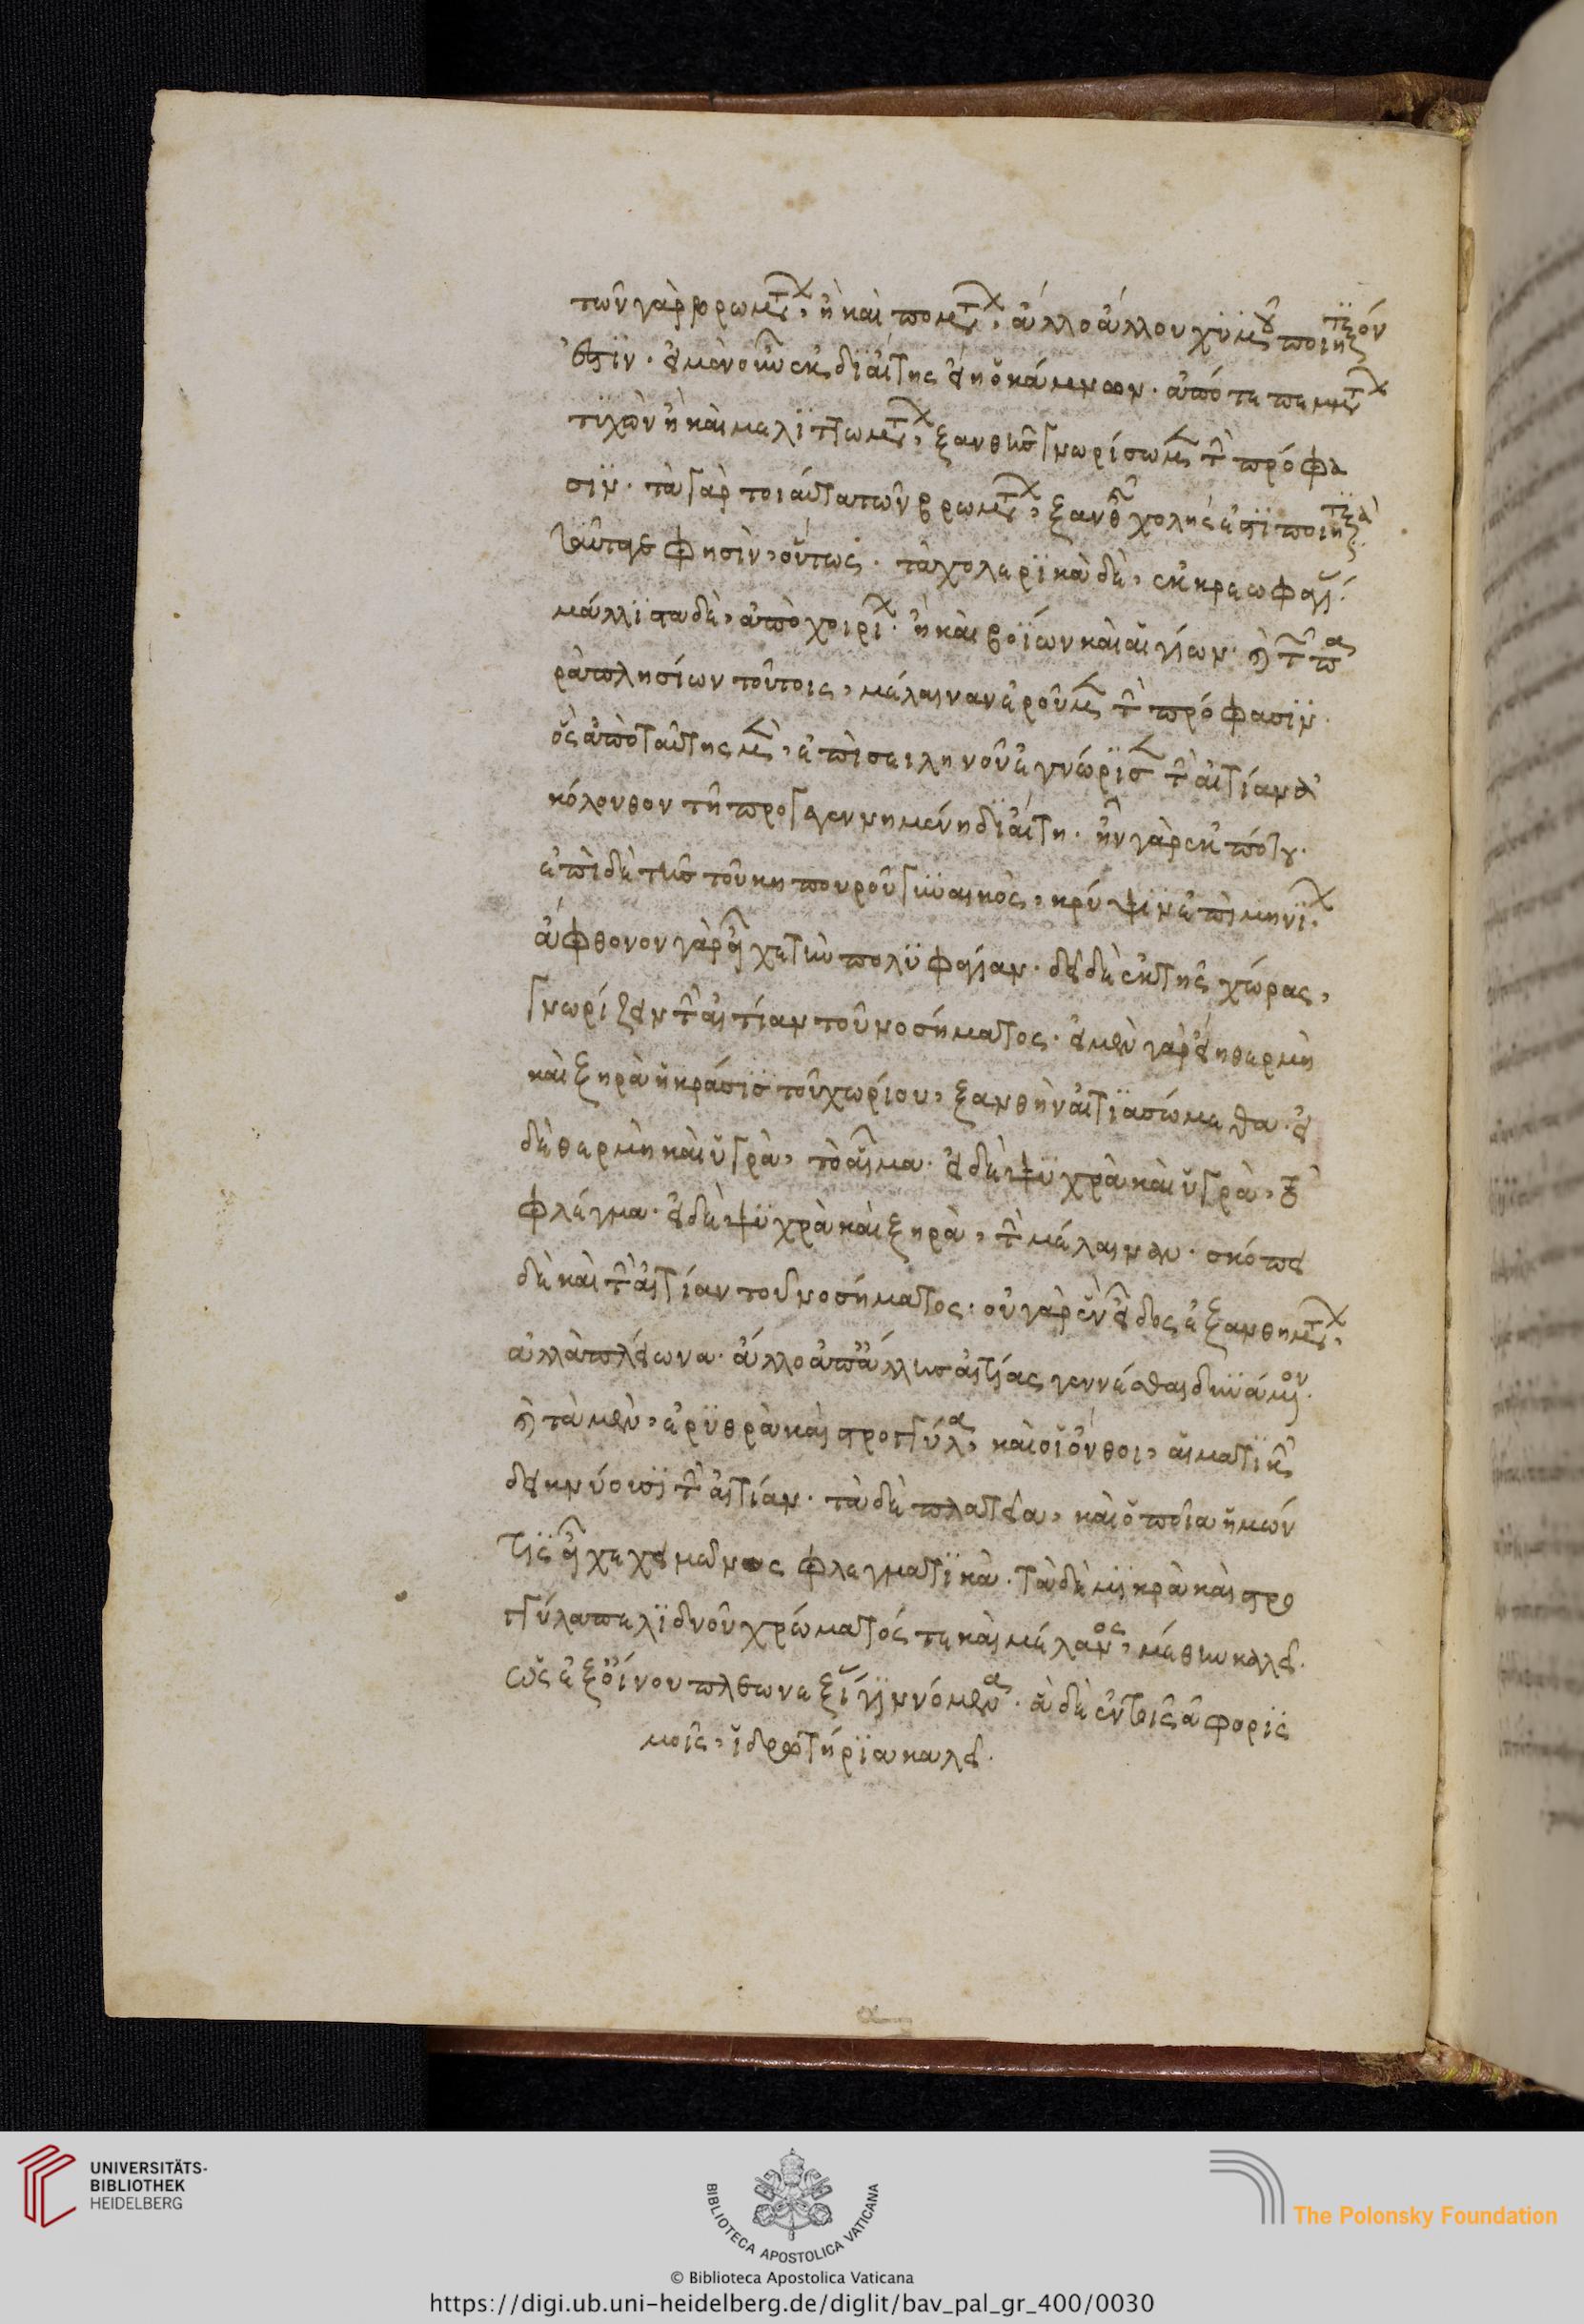 τῶν γὰρ βρωμάτων, ἢ καὶ πομάτων, ἄλλο ἄλλου χυμοῦ ποιητικόν
ἐστιν. εἰ μὲν οὖν ἐκ διαίτης εἴη ὁ κάμνων. ἀπό τε πεμμάτων
τυχὸν ἢ καὶ μελιττωμάτων, ξανθὴν γνωρίσωμεν τὴν πρόφα
σιν. τὰ γὰρ τοιαῦτα τῶν βρωμάτων, ξανθῆς χολῆς ἐστὶ ποιητικά
φησὶν, οὕτως. τὰ χολερικὰ δὲ, ἐκ κρεωφαγίης.
μάλιστα δὲ, ἀπὸ χοιρίων. ἢ καὶ βοΐων καὶ αἰγίων. καὶ τῶν πα
ραπλησίων τούτοις, μέλαιναν ἐροῦμεν τὴν πρόφασιν.
ὡς ἀπὸ ταύτης μὲν, ἐπὶ σειληνοῦ ἐγνώρισεν τὴν αἰτίαν ἀ
κόλουθον τῇ προγεγεννημένῃ διαίτῃ. ἦν γὰρ ἐκ πότου.
ἐπὶ δὲ τῆς τοῦ κηπουροῦ γυναικὸς, κρύψιν ἐπιμηνίων.
ἄφθονον γὰρ εἶχε τὴν πολυφαγίαν. δεῖ δὲ ἐκ τῆς χώρας,
γνωρίζειν τὴν αἰτίαν τοῦ νοσήματος. εἰ μὲν γὰρ εἴη θερμὴ
καὶ ξηρὰ ἡ κράσις τοῦ χωρίου, ξανθὴν αἰτιασώμεθα. εἰ
δὲ θερμὴ καὶ ὑγρὰ, τὸ αἷμα. εἰ δὲ ψυχρὰ καὶ ὑγρὰ, τὸ
φλέγμα. εἰ δὲ ψυχρὰ καὶ ξηρὰ, τὴν μέλαιναν. σκόπει
δὲ καὶ τὴν αἰτίαν τοῦ νοσήματος. οὐ γὰρ ἓν εἶδος ἐξανθημάτων,
ἀλλὰ πλείωνα. ἄλλο ἀπ' ἄλλης αἰτίας γεννέσθαι δυνάμενον.
καὶ τὰ μὲν, ἐρυθρὰ καὶ στρογγύλα, καὶ οἱ ἴονθοι, αἱματικὴν
δεικνύουσι τὴν αἰτίαν. τὰ δὲ πλατεῖα, καὶ ὁποῖα ἡμῶν
τις εἶχε χειμῶνος φλεγματικὰ. τὰ δὲ μικρὰ καὶ στρο
γγύλα πελιδνοῦ χρώματός τε καὶ μέλανος, μέθην καλεῖ.
ὡς ἐξ οἴνου πλείωνε ξι γινόμενα. ἃ δὲ ἐν τοῖς ἀφορις
μοῖς, ἱδρωτήρια καλεῖ.
α
UNIVERSITÄTS-
BIBLIOTHEK
HEIDELBERG
BIBLIOTECA APOSTOLICA VATICANA
The Polonsky Foundation
© Biblioteca Apostolica Vaticana
https://digi.ub.uni-heidelberg.de/diglit/bav_pal_gr_400/0030